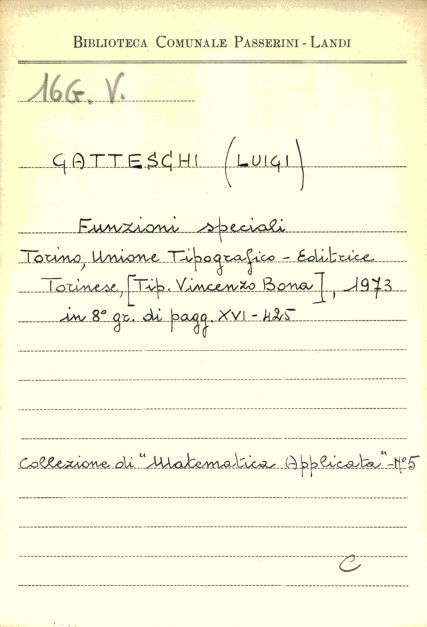 BIBLIOTECA COMUNALE PASSERINI - LANDI
16G. V.
GATTESCHI (LUIGI)
Funzioni speciali
Torino, Unione Tipografico - Editrice
Torinese, [Tip. Vincenzo Bona], 1973
in 8° gr. di pagg. XVI - 425
Collezione di "Matematica Applicata" - N° 5
C